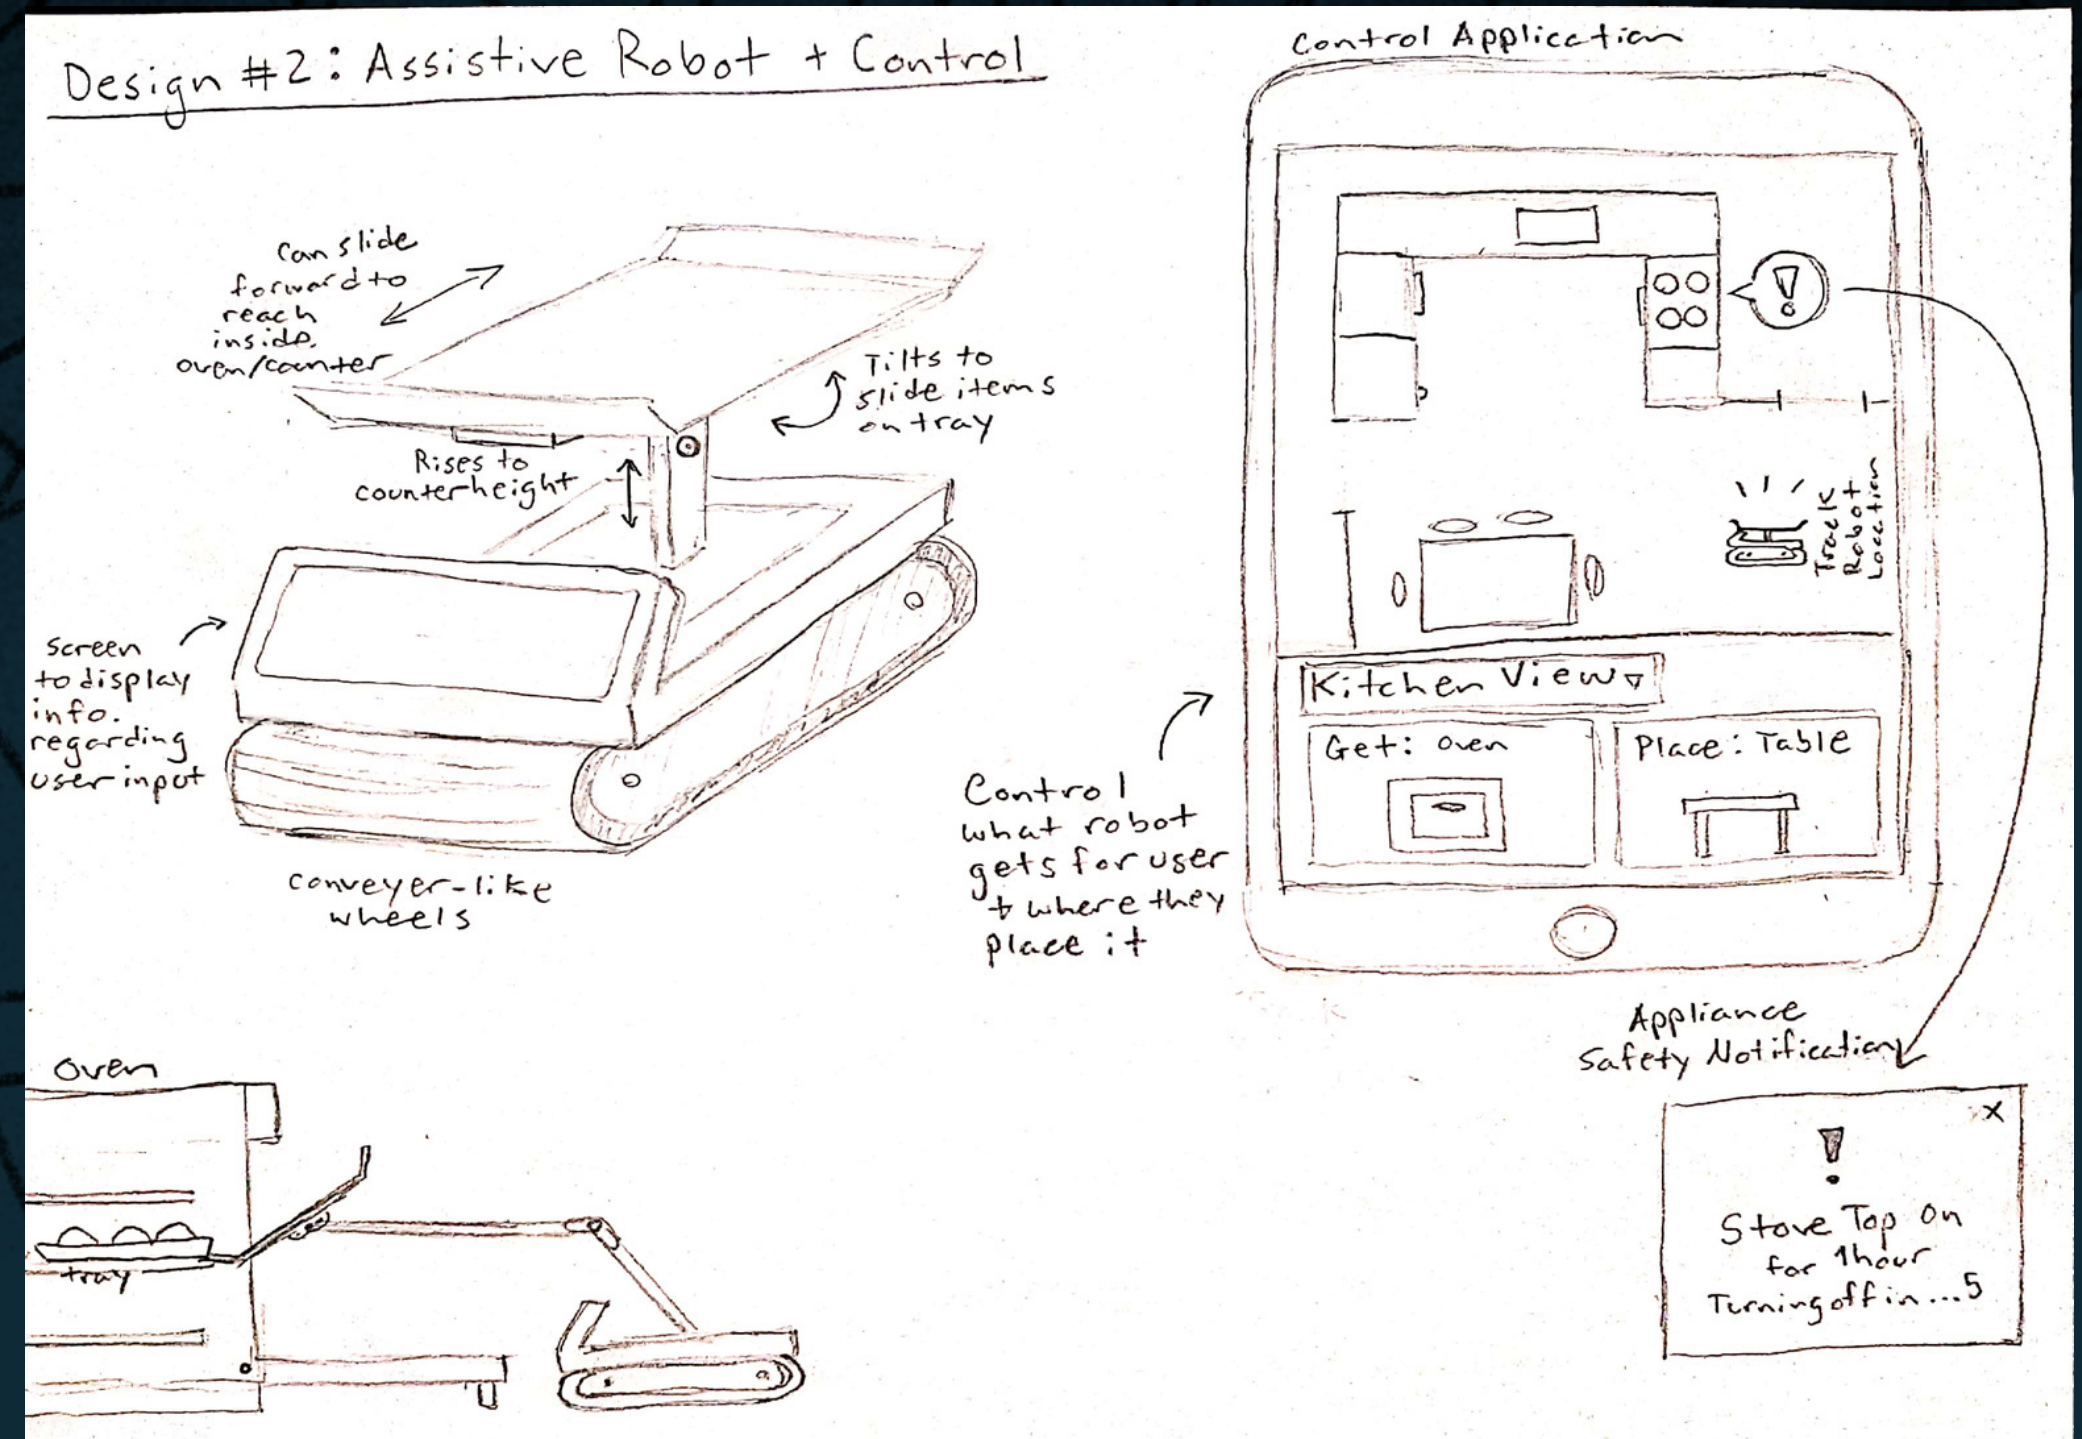 Design #2: Assistive Robot + Control
Can slide
forward to
reach
inside.
oven/counter
Tilts to
slide items
on tray
Rises to
counterheight
Screen
to display
info.
regarding
user input
conveyer-like
wheels
Oven
tray
Control Application
!
Track
Robot
Location
Kitchen View
Get: Oven
Place: Table
Control
what robot
gets for user
+ where they
place it
Appliance
Safety Notification
X
!
Stove Top On
for 1hour
Turning off in ...5